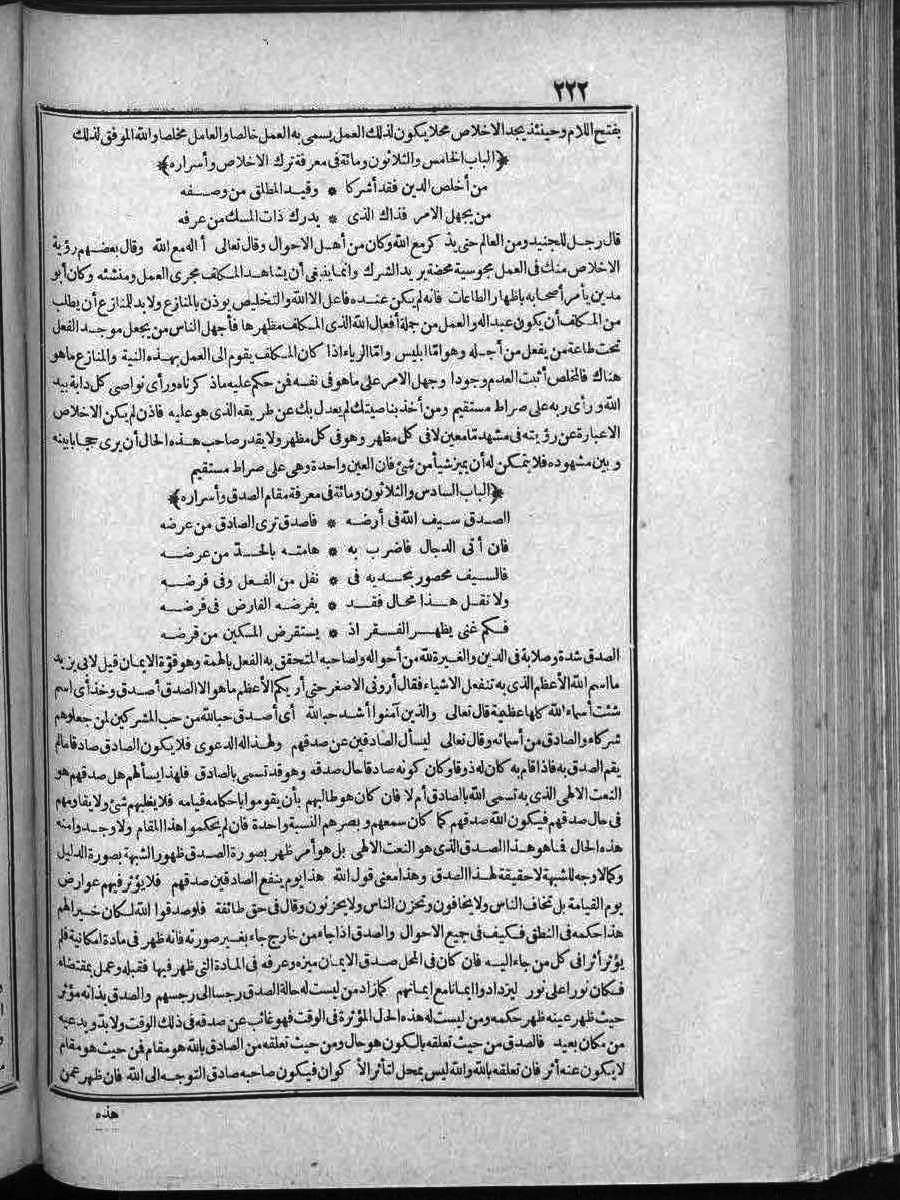 ٢٢٢
بفتح اللام وحينئذ يجد الاخلاص محلا يكون لذلك العمل يسمى به العمل خالصا والعامل مخلصا والله الموفق لذلك
﴿الباب الخامس والثلاثون ومائة فى معرفة ترك الاخلاص وأسراره﴾
من أخلص الدين فقد أشركا * وقيد المطلق من وصفه
من يجهل الامر فذاك الذى * يدرك ذات المسك من عرفه
قال رجل للجنيد ومن العالم حتى يذكر مع الله وكان من أهل الاحوال وقال تعالى أاله مع الله وقال بعضهم رؤية
الاخلاص منك فى العمل مجوسية محضة يريد الشرك وانما ينبغى أن يشاهد المكلف مجرى العمل ومنشئه وكان أبو
مدين يأمر أصحابه باظهار الطاعات فانه لم يكن عنده فاعل الا الله والتخليص يوذن بالمنازع ولا بد للمنازع أن يطلب
من المكلف أن يكون عبدا له والعمل من جملة أفعال الله الذى المكلف مظهرها فأجهل الناس من يجعل موجد الفعل
تحت طاعة من يفعل من أجله وهو امّا ابليس وامّا الرياء اذا كان المكلف يقوم الى العمل بهذه النية والمنازع ما هو
هناك فالمخلص أثبت العدم وجودا وجهل الامر على ما هو فى نفسه فمن حكم عليه ما ذكرناه ورأى نواصى كل دابة بيد
الله ورأى ربه على صراط مستقيم ومن أخذ بناصيتك لم يعدل بك عن طريقه الذى هو عليه فاذن لم يكن الاخلاص
الا عبارة عن رؤيته فى مشهد مّا معين لا فى كل مظهر وهو فى كل مظهر ولا يقدر صاحب هذه الحال أن يرى حجابا بينه
وبين مشهوده فلا يتمكن له أن يميز شيأ من شئ فان العين واحدة وهى على صراط مستقيم
﴿الباب السادس والثلاثون ومائة فى معرفة مقام الصدق وأسراره﴾
الصدق سيف الله فى أرضه * فاصدق ترى الصادق من عرضه
فان أتى الدجال فاضرب به * هامته بالحدّ من عرضه
فالسيف محصور بحديه فى * نفل من الفعل وفى فرضه
ولا تقل هذا محال فقد * يفرضه الفارض فى فرضه
فكم غنى يظهر الفقر اذ * يستقرض المكين من قرضه
الصدق شدة وصلابة فى الدين والغيرة لله من أحواله ولصاحبه المتحقق به الفعل بالهمة وهو قوّة الايمان قيل لابى يزيد
ما اسم الله الأعظم الذى به تنفعل الاشياء فقال أرونى الاصغر حتى أريكم الأعظم ما هو الا الصدق أصدق وخذ أى اسم
شئت أسماء الله كلها عظيمة قال تعالى والذين آمنوا أشد حبا لله أى أصدق حبا لله من حب المشركين لمن جعلوهم
شركاء والصادق من أسمائه وقال تعالى ليسأل الصادقين عن صدقهم ولهذا له الدعوى فلا يكون الصادق صادقا ما لم
يقم الصدق به فاذا قام به كان له ذوقا وكان كونه صادقا حال صدقه وهو قد تسمى بالصادق فلهذا يسألهم هل صدقهم هو
النعت الالهى الذى به تسمى الله بالصادق أم لا فان كان هو طالبهم بأن يقوموا باحكامه قيامه فلا يغلبهم شئ ولا يقاومهم
فى حال صدقهم فيكون الله صدقهم كما كان سمعهم وبصرهم النسبة واحدة فان لم يحكموا هذا المقام ولا وجدوا منه
هذه الحال فما هو هذا الصدق الذى هو النعت الالهى بل هو أمر ظهر بصورة الصدق ظهور الشبهة بصورة الدليل
وكما لا وجه للشبهة لا حقيقة لهذا الصدق وهذا معنى قول الله هذا يوم ينفع الصادقين صدقهم فلا يؤثر فيهم عوارض
يوم القيامة بل تخاف الناس ولا يخافون وتحزن الناس ولا يحزنون وقال فى حق طائفة فلو صدقوا الله لكان خيرا لهم
هذا حكمه فى النطق فكيف فى جميع الاحوال والصدق اذا جاء من خارج جاء بغير صورته فانه ظهر فى مادة امكانية فلم
يؤثر أثرا فى كل من جاء اليه فان كان فى المحل صدق الايمان ميزه وعرفه فى المادة التى ظهر فيها فقبله وعمل بمقتضاه
فكان نورا على نور ليزدادوا ايمانا مع ايمانهم كما زاد من ليست له حالة الصدق رجسا الى رجسهم والصدق بذاته مؤثر
حيث ظهر عينه ظهر حكمه ومن ليست له هذه الحال المؤثرة فى الوقت فهو غائب عن صدقه فى ذلك الوقت ولا بدّ ويدعيه
من مكان بعيد فالصدق من حيث تعلقه بالكون هو حال ومن حيث تعلقه من الصادق بالله هو مقام فمن حيث هو مقام
لا يكون عنه أثر فان تعلقه بالله والله ليس بمحل لتأثر الأكوان فيكون صاحبه صادق التوجه الى الله فان ظهر عمن
هذه